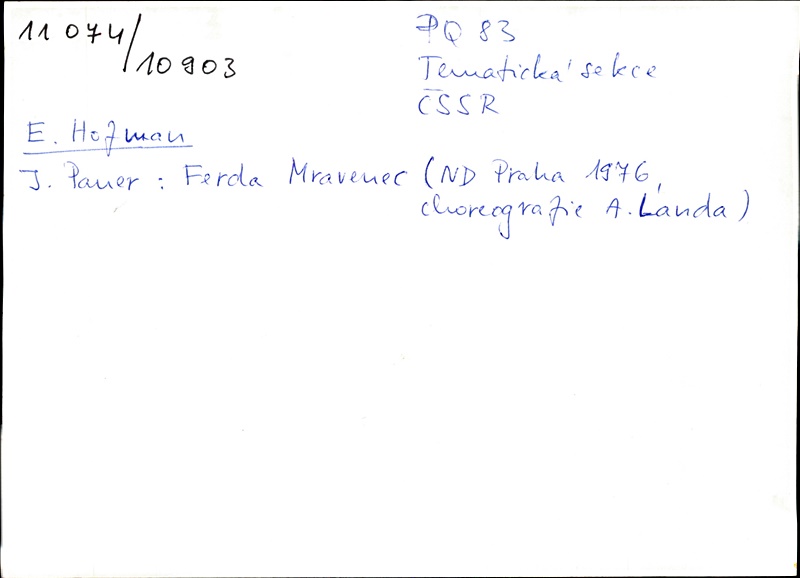 11 074/10903
PQ 83
Tematická sekce
ČSSR
E. Hofman
J. Pauer: Ferda Mravenec (ND Praha 1976,
choreografie A. Landa)